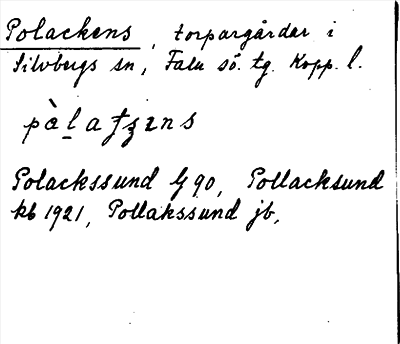 Polackens, torpargårdar i
Silvbergs sn, Falu sö. tg. Kopp. l.
pòlaʈʂɪns
Polackssund G 90, Pollacksund
kb 1921, Pollakssund jb,